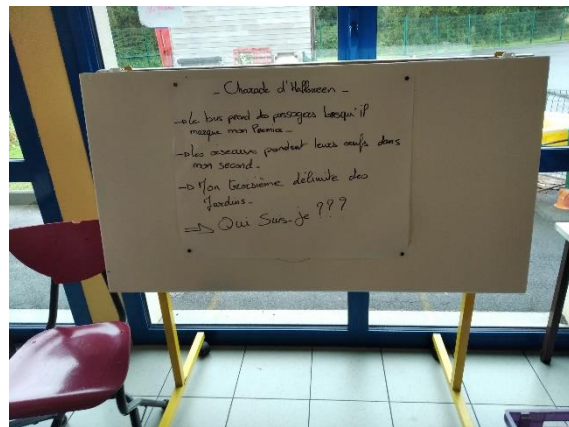 - Charade d'Halloween -
→ Le bus prend des passagers lorsqu'il
marque mon Premier -
→ Les oiseaux pondent leurs oeufs dans
mon second -
→ Mon troisième délimite des
Jardins -
⇒ Qui Suis-je ???